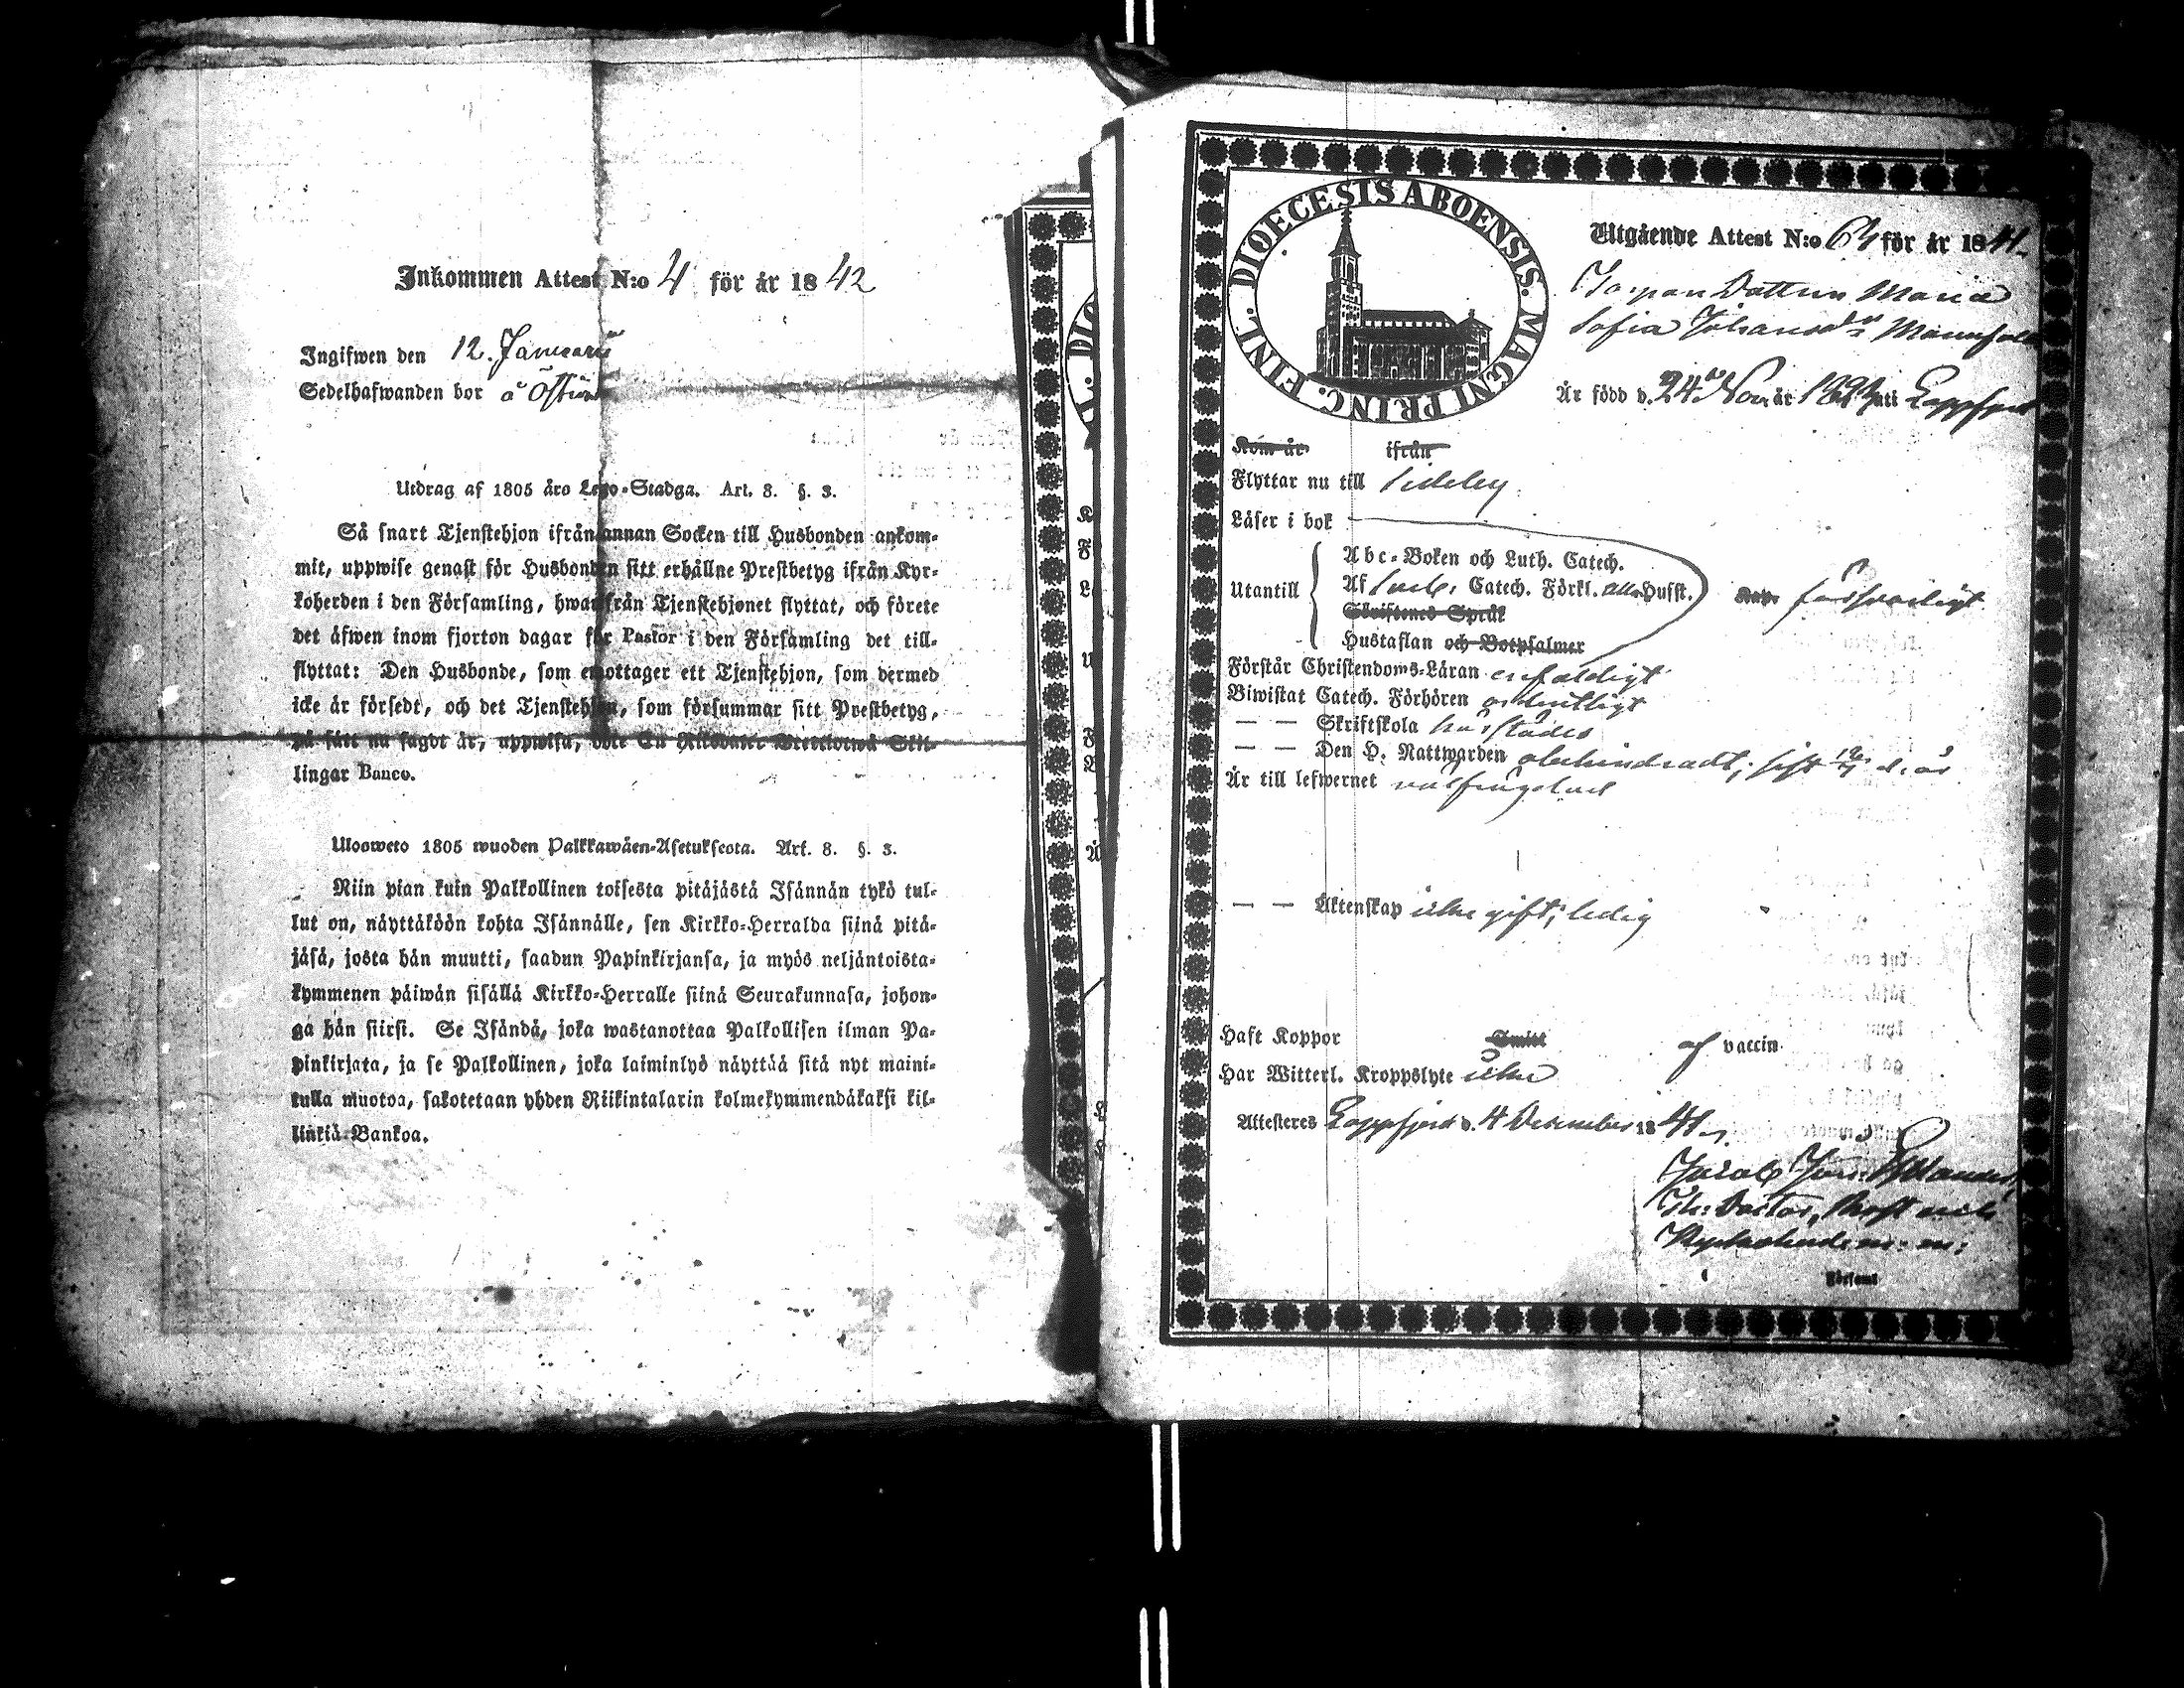 Inkommen Attest N:o 4 för år 1842
Ingifwen den 12. Januarii
Sedelhafwanden bor å
Utdrag af 1805 års Lego-Stadga. Art. 8. §. 3.
Så snart Tjenstehjon ifrån annan Socken till Husbonden ankom-
mit, uppwise genast för Husbonden sitt erhållne Prestbetyg ifrån Kyr-
koherden i den Församling, hwarifrån Tjenstehjonet flyttat, och förete
det äfwen inom fjorton dagar för Pastor i den Församling det till-
flyttat: Den Husbonde, som emottager ett Tjenstehjon, som dermed
icke är försedt, och det Tjenstehjon, som försummar sitt Prestbetyg,
på sätt nu sagdt är, uppwisa, böte En Riksdaler Trettiotwå Skil-
lingar Banco.
Ulosweto 1805 wuoden Palkkawäen-Asetuksesta. Art. 8. §. 3.
Niin pian kuin Palkollinen toisesta pitäjästä Isännän tykö tul-
lut on, näyttäköön kohta Isännälle, sen Kirkko-Herralda siinä pitä-
jäsä, josta hän muutti, saadun Papinkirjansa, ja myös neljäntoista-
kymmenen päiwän sisällä Kirkko-Herralle siinä Seurakunnasa, johon-
ga hän siirsi. Se Isändä, joka wastanottaa Palkollisen ilman Pa-
pinkirjata, ja se Palkollinen, joka laiminlyö näyttää sitä nyt maini-
tulla muotoa, sakotetaan yhden Riikintalarin kolmekymmendäkaksi kil-
linkiä Bankoa.
DIOECESIS ABOENSIS. MAGNI PRINC. FINL.
Utgående Attest N:o 63 för år 1841.
Dottren Maria
Sofia Johansdr
Är född d. 24 Nov. år uti Lappfjerd
Kom år ifrån
Flyttar nu till Sideby
Läser i bok
Abc-Boken och Luth. Catech.
Utantill Af Sveb. Catech. Förkl. Hufst. försvarligt
Skriftenes Språk
Hustaflan och Botpsalmer
Förstår Christendoms-Läran enfaldigt
Biwistat Catech. Förhören ordentligt
— — Skriftskola härstädes
— — Den H. Nattwarden obehindradt, sist
Är till lefwernet välfrägdad
— — Äktenskap icke gift, ledig
Haft Koppor Smitt af vaccin
Har Witterl. Kroppslyte icke
Attesteres Lappfjerd d. 4 December 1841.
Jacob
Th: Doctor, Prost och
Kyrkoherde m: m:
Församl